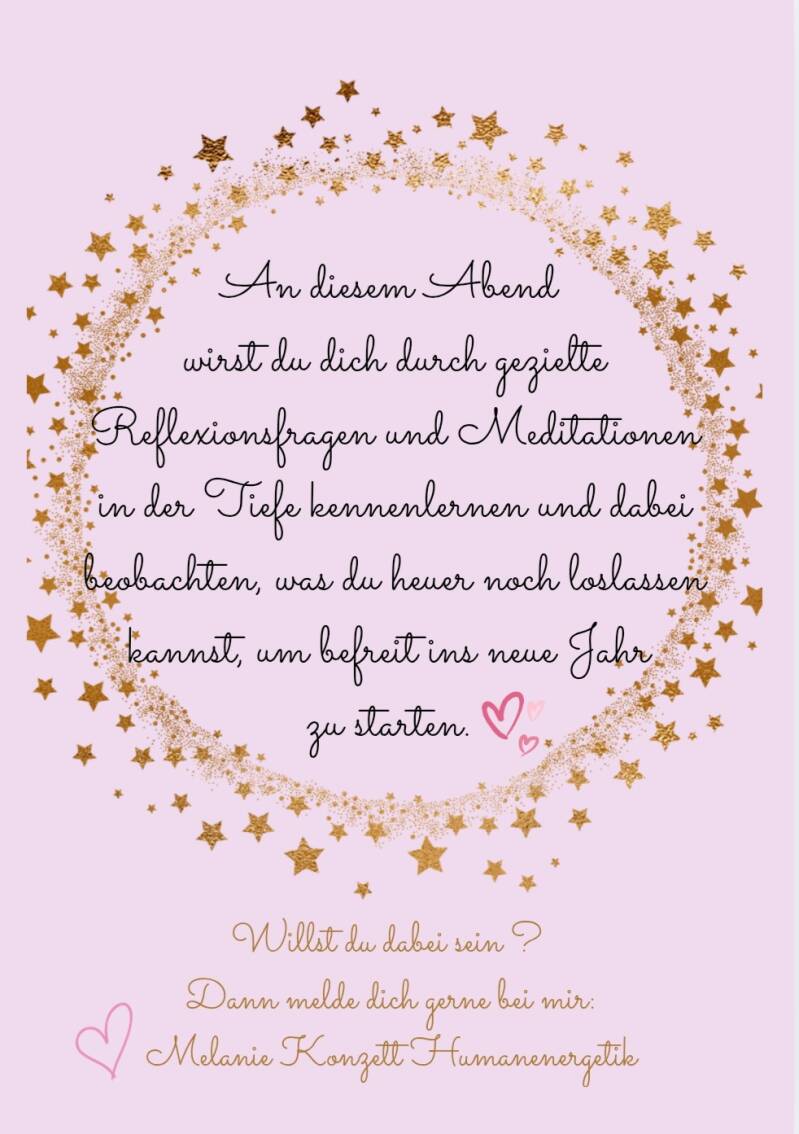 An diesem Abend
wirst du dich durch gezielte
Reflexionsfragen und Meditationen
in der Tiefe kennenlernen und dabei
beobachten, was du heuer noch loslassen
kannst, um befreit ins neue Jahr
zu starten.
Willst du dabei sein ?
Dann melde dich gerne bei mir:
Melanie Konzett Humanenergetik